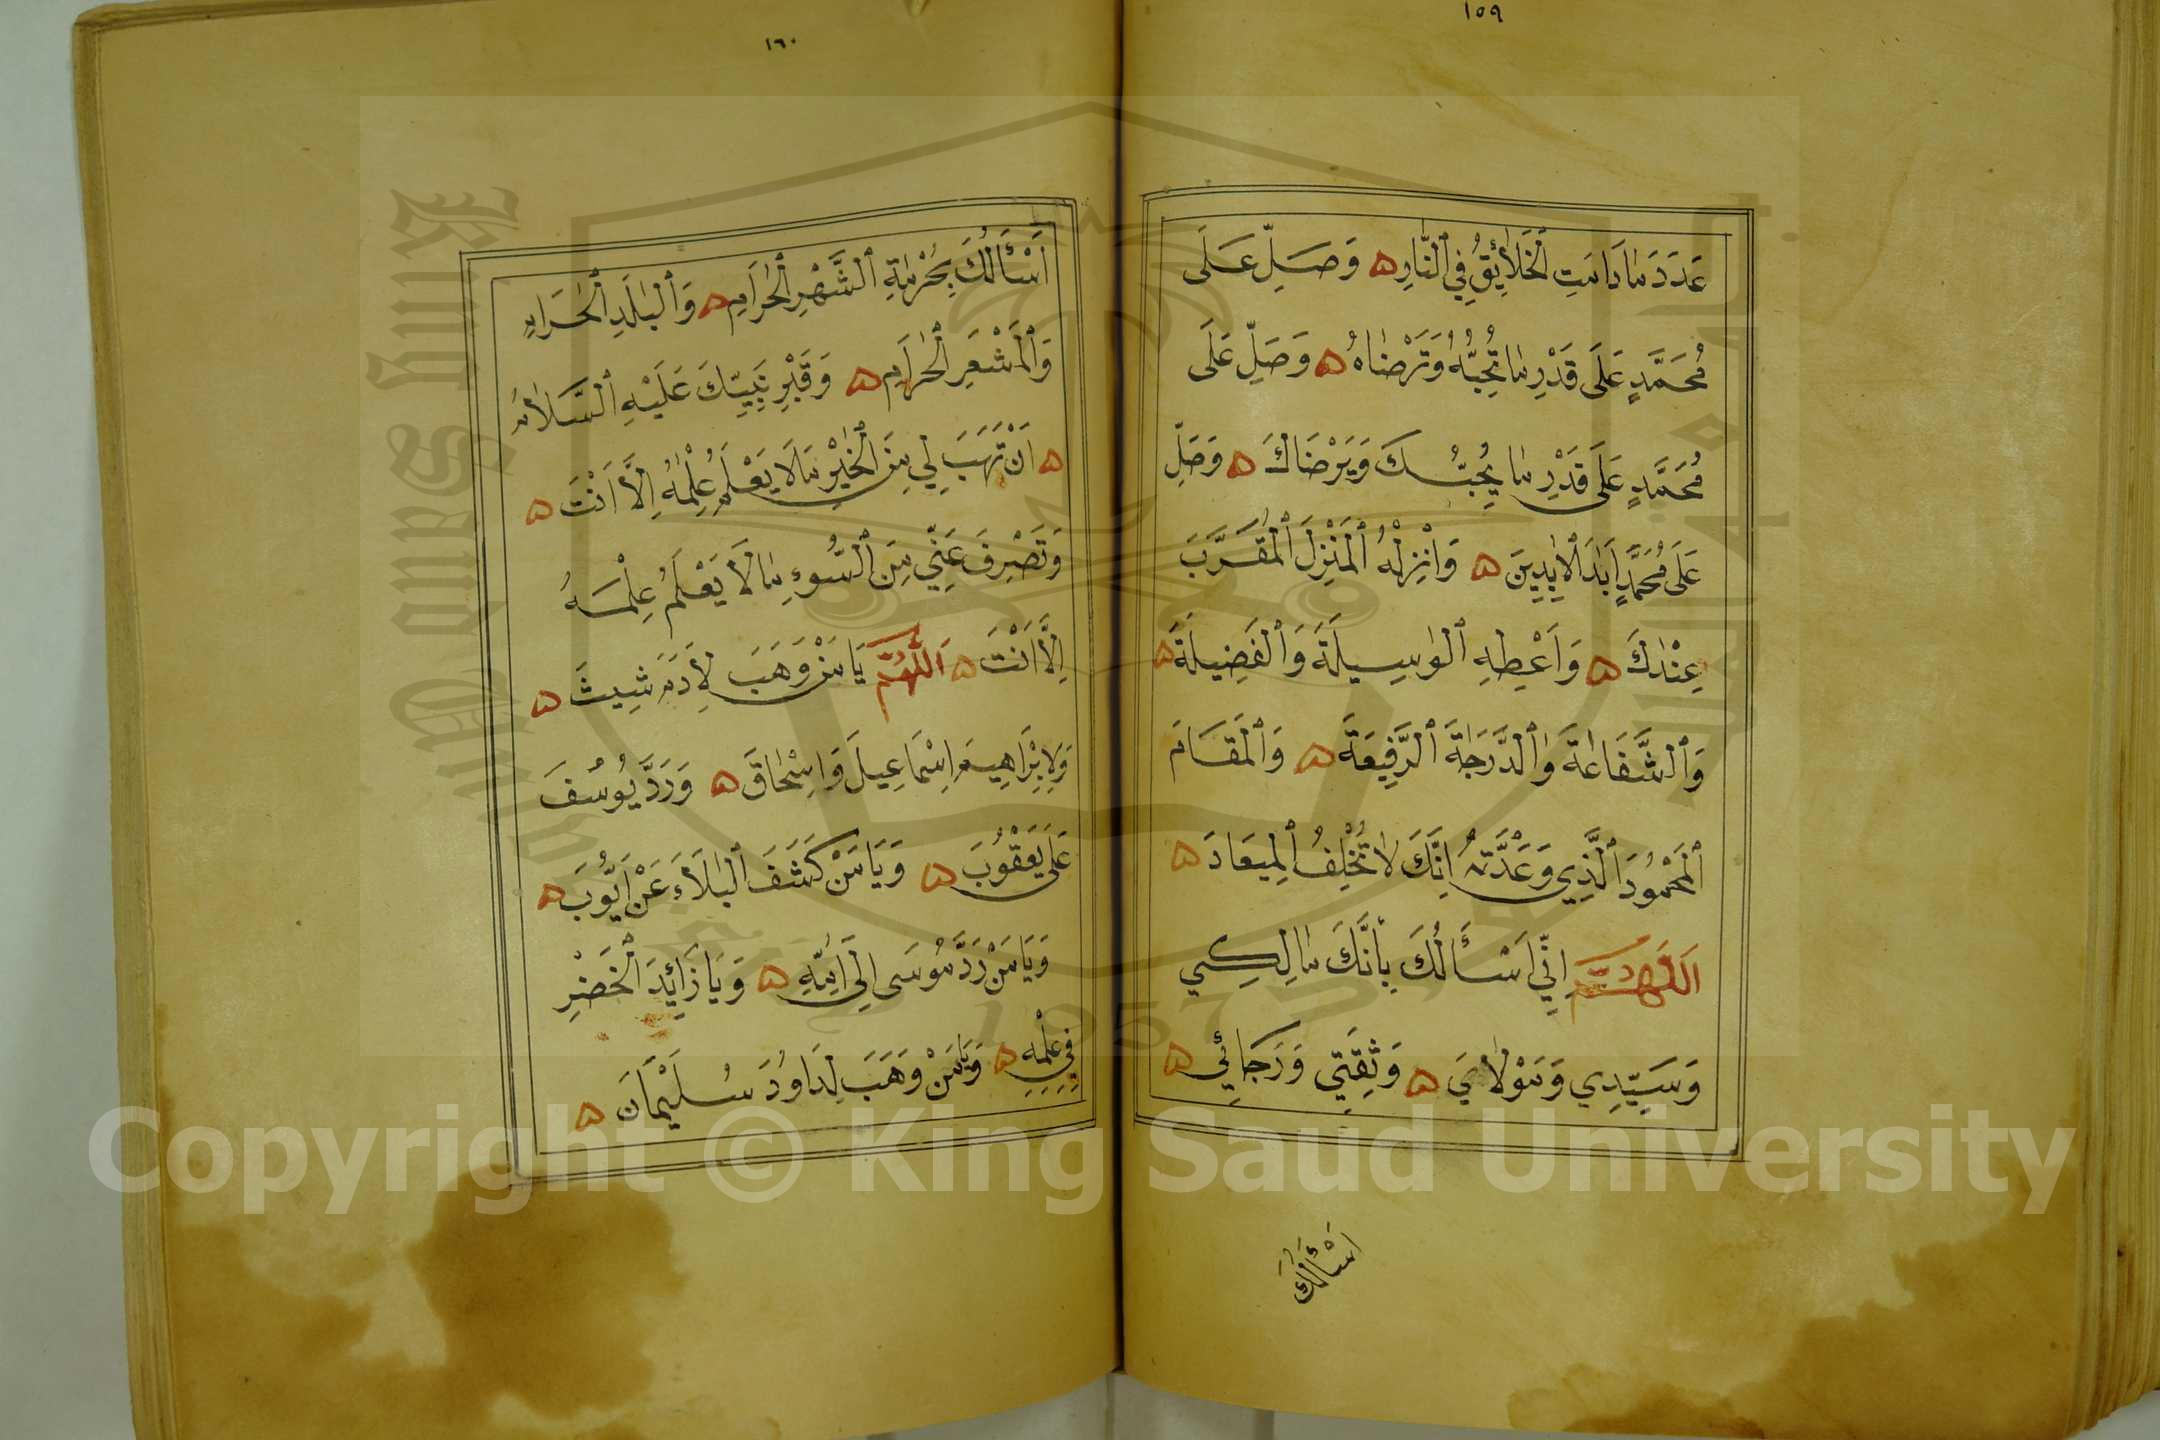 ١٥٩
عَدَدَ مَا دَامَتِ الْخَلَائِقُ فِي النَّارِ ۞ وَصَلِّ عَلَى
مُحَمَّدٍ عَلَى قَدْرِ مَا تُحِبُّهُ وَتَرْضَاهُ ۞ وَصَلِّ عَلَى
مُحَمَّدٍ عَلَى قَدْرِ مَا يُحِبُّكَ وَيَرْضَاكَ ۞ وَصَلِّ
عَلَى مُحَمَّدٍ أَبَدَ الْآبِدِينَ ۞ وَأَنْزِلْهُ الْمَنْزِلَ الْمُقَرَّبَ
عِنْدَكَ ۞ وَأَعْطِهِ الْوَسِيلَةَ وَالْفَضِيلَةَ ۞
وَالشَّفَاعَةَ وَالدَّرَجَةَ الرَّفِيعَةَ ۞ وَالْمَقَامَ
الْمَحْمُودَ الَّذِي وَعَدْتَهُ إِنَّكَ لَا تُخْلِفُ الْمِيعَادَ ۞
اَللَّهُمَّ إِنِّي أَسْأَلُكَ بِأَنَّكَ مَالِكِي
وَسَيِّدِي وَمَوْلَايَ ۞ وَثِقَتِي وَرَجَائِي ۞
اَسْأَلُكَ
١٦٠
اَسْأَلُكَ بِحُرْمَةِ الشَّهْرِ الْحَرَامِ ۞ وَالْبَلَدِ الْحَرَامِ
وَالْمَشْعَرِ الْحَرَامِ ۞ وَقَبْرِ نَبِيِّكَ عَلَيْهِ السَّلَامُ
۞ اَنْ تَهَبَ لِي مِنَ الْخَيْرِ مَا لَا يَعْلَمُ عِلْمَهُ اِلَّا اَنْتَ ۞
وَتَصْرِفَ عَنِّي مِنَ السُّوءِ مَا لَا يَعْلَمُ عِلْمَهُ
اِلَّا اَنْتَ ۞ اَللَّهُمَّ يَا مَنْ وَهَبَ لِأَدَمَ شِيثَ ۞
وَلِإِبْرَاهِيمَ اِسْمَاعِيلَ وَاِسْحَاقَ ۞ وَرَدَّ يُوسُفَ
عَلَى يَعْقُوبَ ۞ وَيَا مَنْ كَشَفَ الْبَلَاءَ عَنْ اَيُّوبَ ۞
وَيَا مَنْ رَدَّ مُوسَى اِلَى اُمِّهِ ۞ وَيَا زَائِدَ الْخَضْرِ
فِي عِلْمِهِ ۞ وَيَا مَنْ وَهَبَ لِدَاوُدَ سُلَيْمَانَ ۞
King Saud University
1957
Copyright © King Saud University